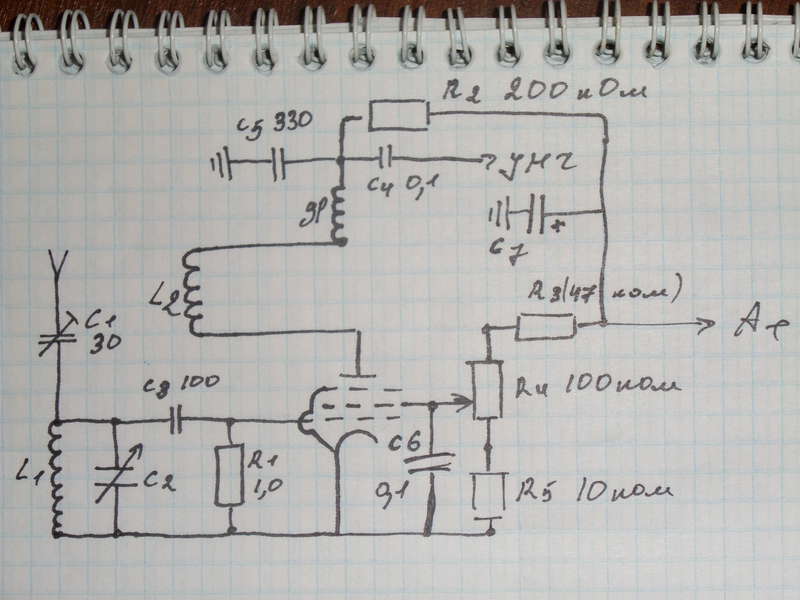 R2 200 кОм
C5 330
C4 0,1
УНЧ
др
C7
+
L2
R3(47 ком)
C1
30
Aе
C3 100
R4 100 ком
L1
C2
R1
1,0
C6
0,1
R5 10 ком